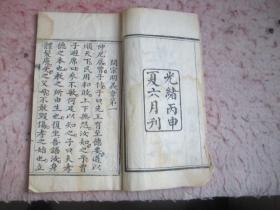 光緒丙申
夏六月刊
開宗明義章第一
仲尼居曾子侍子曰先王有至德要道以
順天下民用和睦上下無怨汝知之乎曾
子避席曰參不敏何足以知之子曰夫孝
德之本也教之所由生也復坐吾語汝身
體髮膚受之父母不敢毀傷孝之始也立